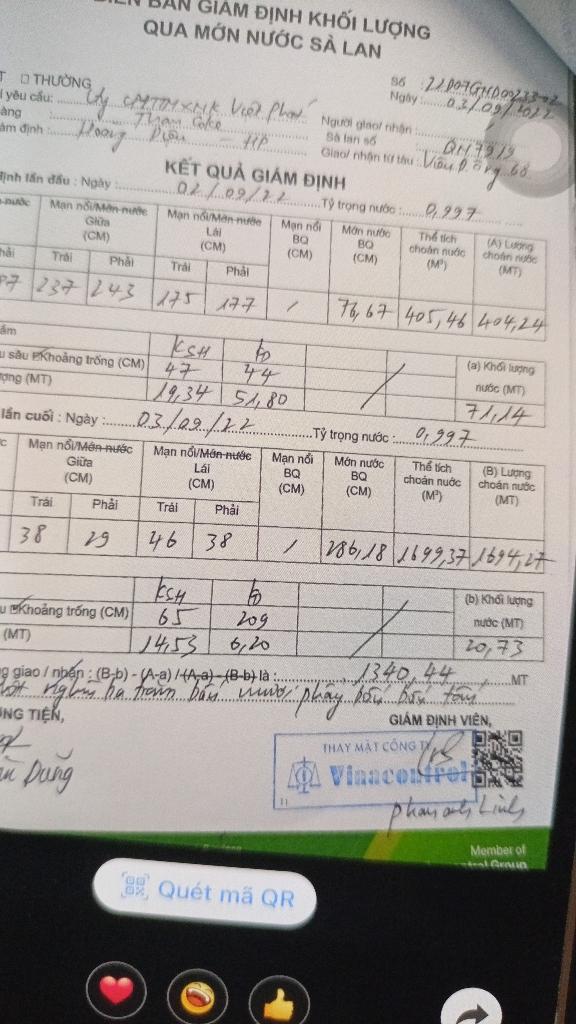 BIÊN BẢN GIÁM ĐỊNH KHỐI LƯỢNG
QUA MỚN NƯỚC SÀ LAN
T □ THƯỜNG
Số :
Ngày: 03/09/2022
yêu cầu: Cty CPTTMXNK Việt Phát
àng : Than Coke
ám định : Hoàng Diệu - HP
Người giao/ nhận :
Sà lan số : QN7919
Giao/ nhận từ tàu : Viễn Đông 68
KẾT QUẢ GIÁM ĐỊNH
định lần đầu : Ngày : 02/09/22 Tỷ trọng nước : 0,997
nước Mạn nổi/Mớn nước Giữa (CM) Mạn nổi/Mớn nước Lái (CM) Mạn nổi BQ (CM) Mớn nước BQ (CM) Thể tích choán nước (M³) (A) Lượng choán nước (MT)
hải Trái Phải Trái Phải
97 237 243 175 177 / 76,67 405,46 404,24
ầm KSH
u sâu Khoảng trống (CM) 47 44 (a) Khối lượng nước (MT)
ượng (MT) 19,34 51,80 71,14
lần cuối : Ngày : 03/09/22 Tỷ trọng nước : 0,997
c Mạn nổi/Mớn nước Giữa (CM) Mạn nổi/Mớn nước Lái (CM) Mạn nổi BQ (CM) Mớn nước BQ (CM) Thể tích choán nước (M³) (B) Lượng choán nước (MT)
Trái Phải Trái Phải
38 29 46 38 / 286,18 1699,37 1694,27
KSH
u Khoảng trống (CM) 65 209 (b) Khối lượng nước (MT)
(MT) 14,53 6,20 20,73
g giao / nhận : (B-b) - (A-a) / (A-a) - (B-b) là : 1340,44 MT
một nghìn ba trăm bốn mươi phẩy bốn bốn tấn
NG TIỆN,
GIÁM ĐỊNH VIÊN,
Dũng
THAY MẶT CÔNG TY
Vinacontrol
11
Phan Anh Linh
Member of
trol Group
Quét mã QR